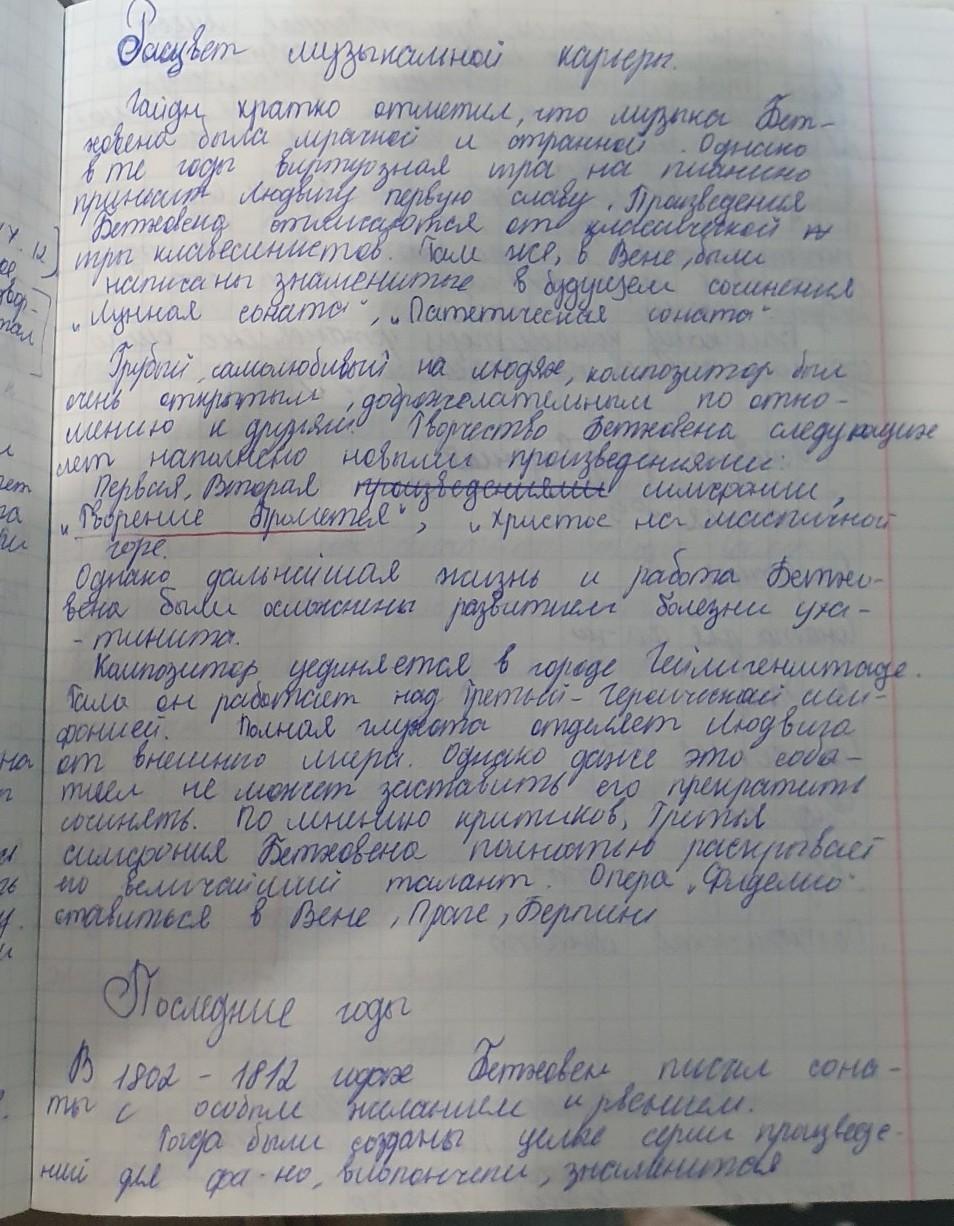 Расцвет музыкальной карьеры.
Гайдн кратко отметил, что музыка Бет-
ховена была мрачной и странной. Однако
в те годы виртуозная игра на пианино
приносит Людвигу первую славу. Произведения
Бетховена отличаются от классической
игры клавесинистов. Там же, в Вене, были
написаны знаменитые в будущем сочинения
"Лунная соната", "Патетическая соната"
Грубый, самолюбивый на людях, композитор был
очень открытым, доброжелательным по отно-
шению к друзьям. Творчество Бетховена следующих
лет наполнено новыми произведениями:
Первая, Вторая произведениями симфонии,
"Творение Прометея", "Христос на масличной
горе.
Однако дальнейшая жизнь и работа Бетхо-
вена были осложнены развитием болезни уха-
-тинита.
Композитор уединяется в городе Гейлигенштаде.
Там он работает над Третьей - Героической сим-
фонией. Полная глухота отделяет Людвига
от внешнего мира. Однако даже это собы-
тием не может заставить его прекратить
сочинять. По мнению критиков, Третья
симфония Бетховена полностью раскрывает
его величайший талант. Опера "Фиделио"
ставиться в Вене, Праге, Берлине
Последние годы
В 1802 - 1812 годах Бетховен писал сона-
ты с особым желанием и рвением.
Тогда были созданы целые серии произведе-
ний для фа-но, виолончели, знаменитая